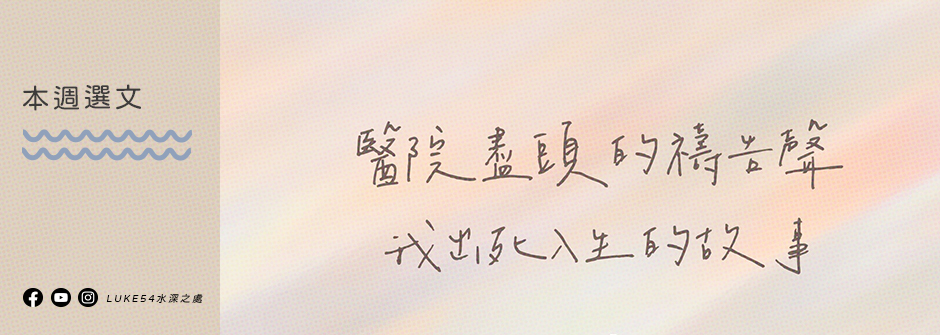 本週選文
醫院盡頭的禱告聲
我出死入生的故事
LUKE54水深之處